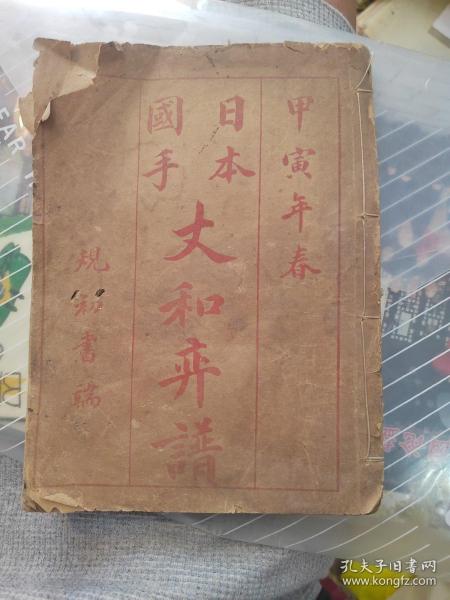 甲寅年春
日本
國手
丈和弈譜
規
書
孔夫子旧书网
www.kongfz.com